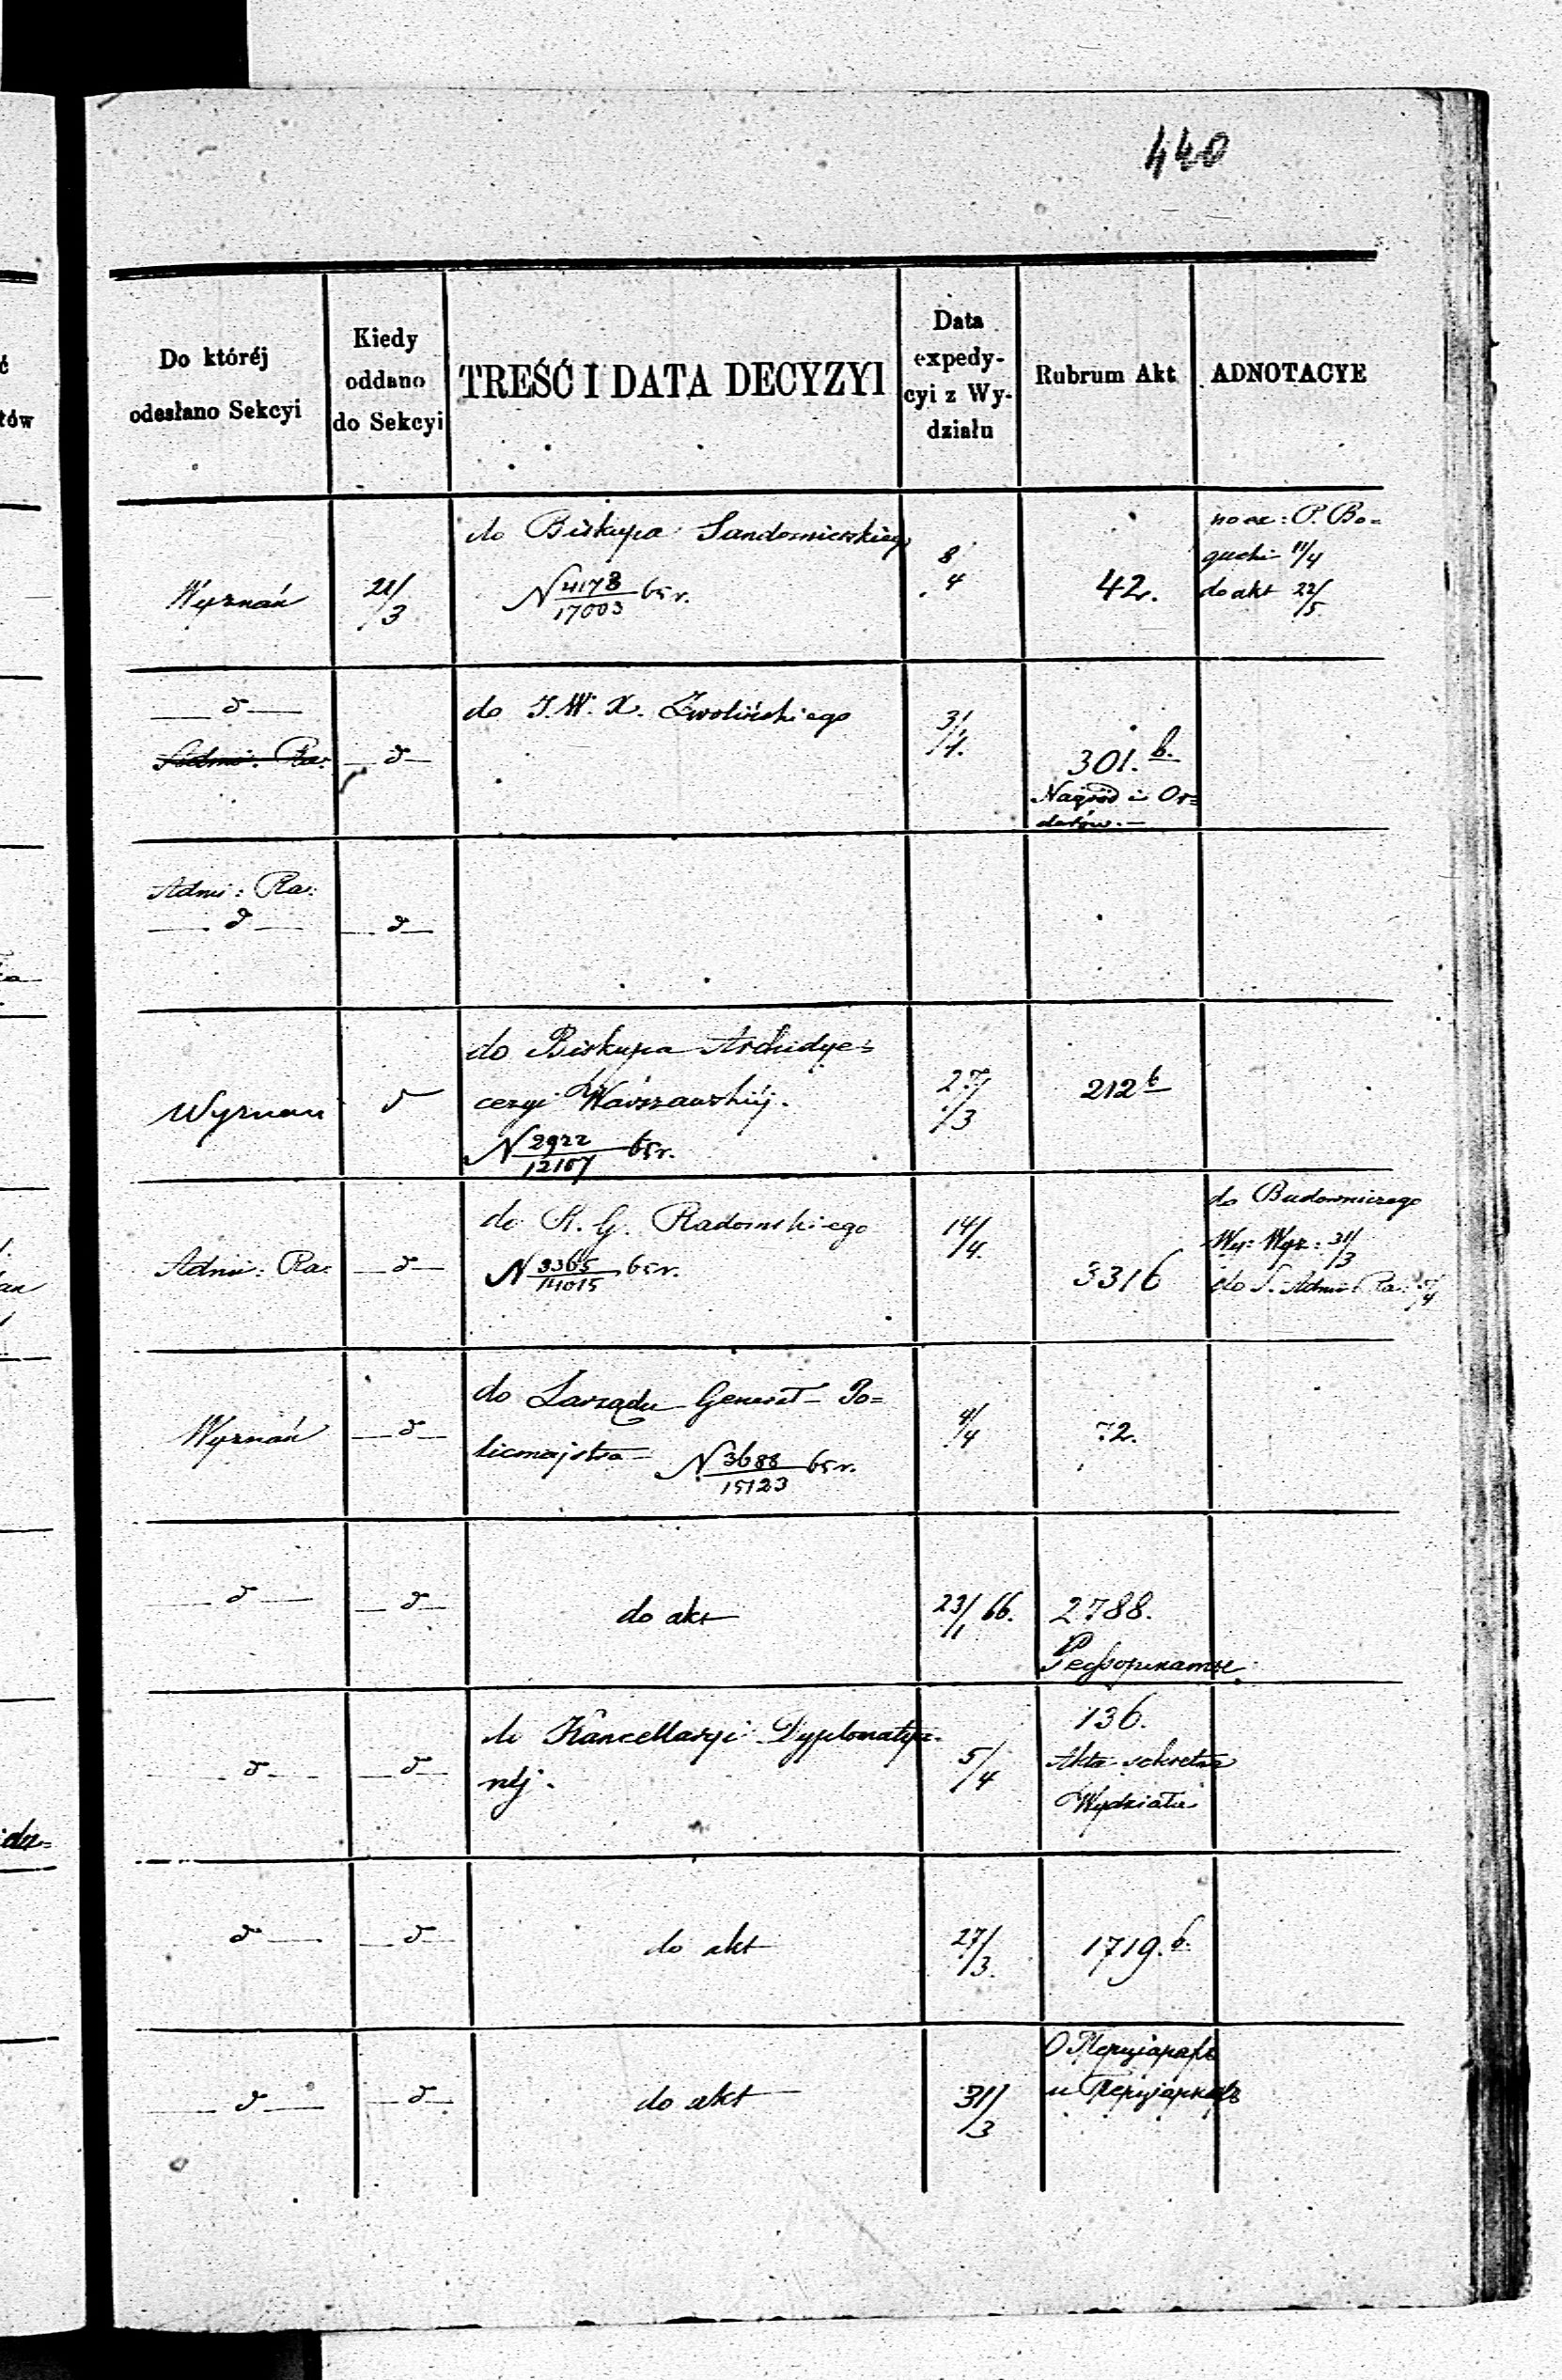 440
Do któréj
odesłano Sekcyi
Kiedy
oddano
do Sekcyi
TREŚĆ I DATA DECYZYI
Data
expedy-
cyi z Wy-
działu
Rubrum Akt
ADNOTACYE
Wyznań
21/3
do Biskupa Sandomierskiego
N 4178/17003 65 r.
8/4
42.
P. Bo-
11/4
do akt 22/5
d
Admi: Ra:
d
do J. W. X. Zwolińskiego
3/4.
301. b.
Nagród i Or=
derów.
Admi: Ra:
d
d
Wyznań
d
do Biskupa Archidye=
cezyi Warszawskiéj.
N 2922/12107 65 r.
27/3
212 b
Admi: Ra:
d
do R. G. Radomskiego
N 3365/14015 65 r.
14/4.
3316
do Budowniczego
Wy: Wyz: 31/3
do S. Admi: Ra:
Wyznań
d
do Zarządu Generał-Po=
licmajstra N 3688/15123 65 r.
4/4
72.
d
d
do akt
23/1 66.
2788.
d
d
do Kancellaryi Dyplomatycz-
néj.
5/4
136.
Akta sekretne
Wydziału
d
d
do akt
27/3.
1719. b.
d
d
do akt
31/3
О
и